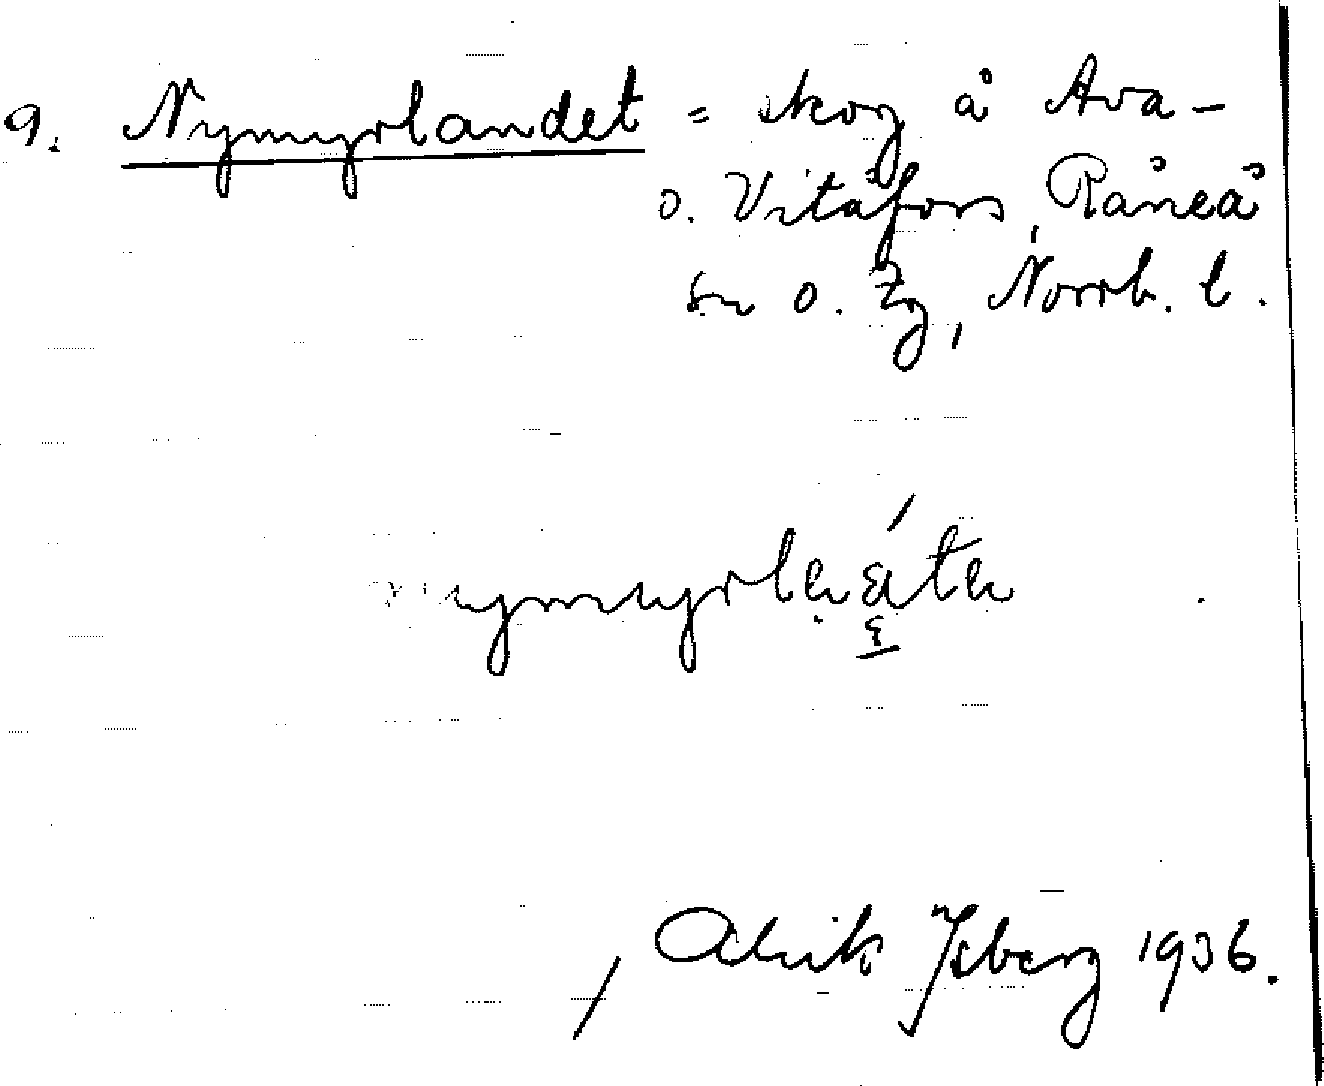 9. Nymyrlandet = skog å Ava-
o. Vitåfors, Råneå
sn o. tg, Norrb. l.
Alrik Isberg 1936.